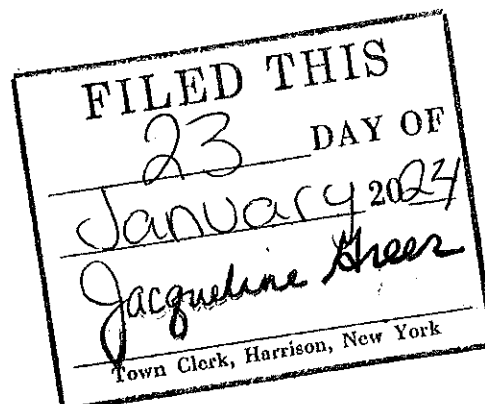 FILED THIS
23 DAY OF
January 2024
Jacqueline Greer
Town Clerk, Harrison, New York